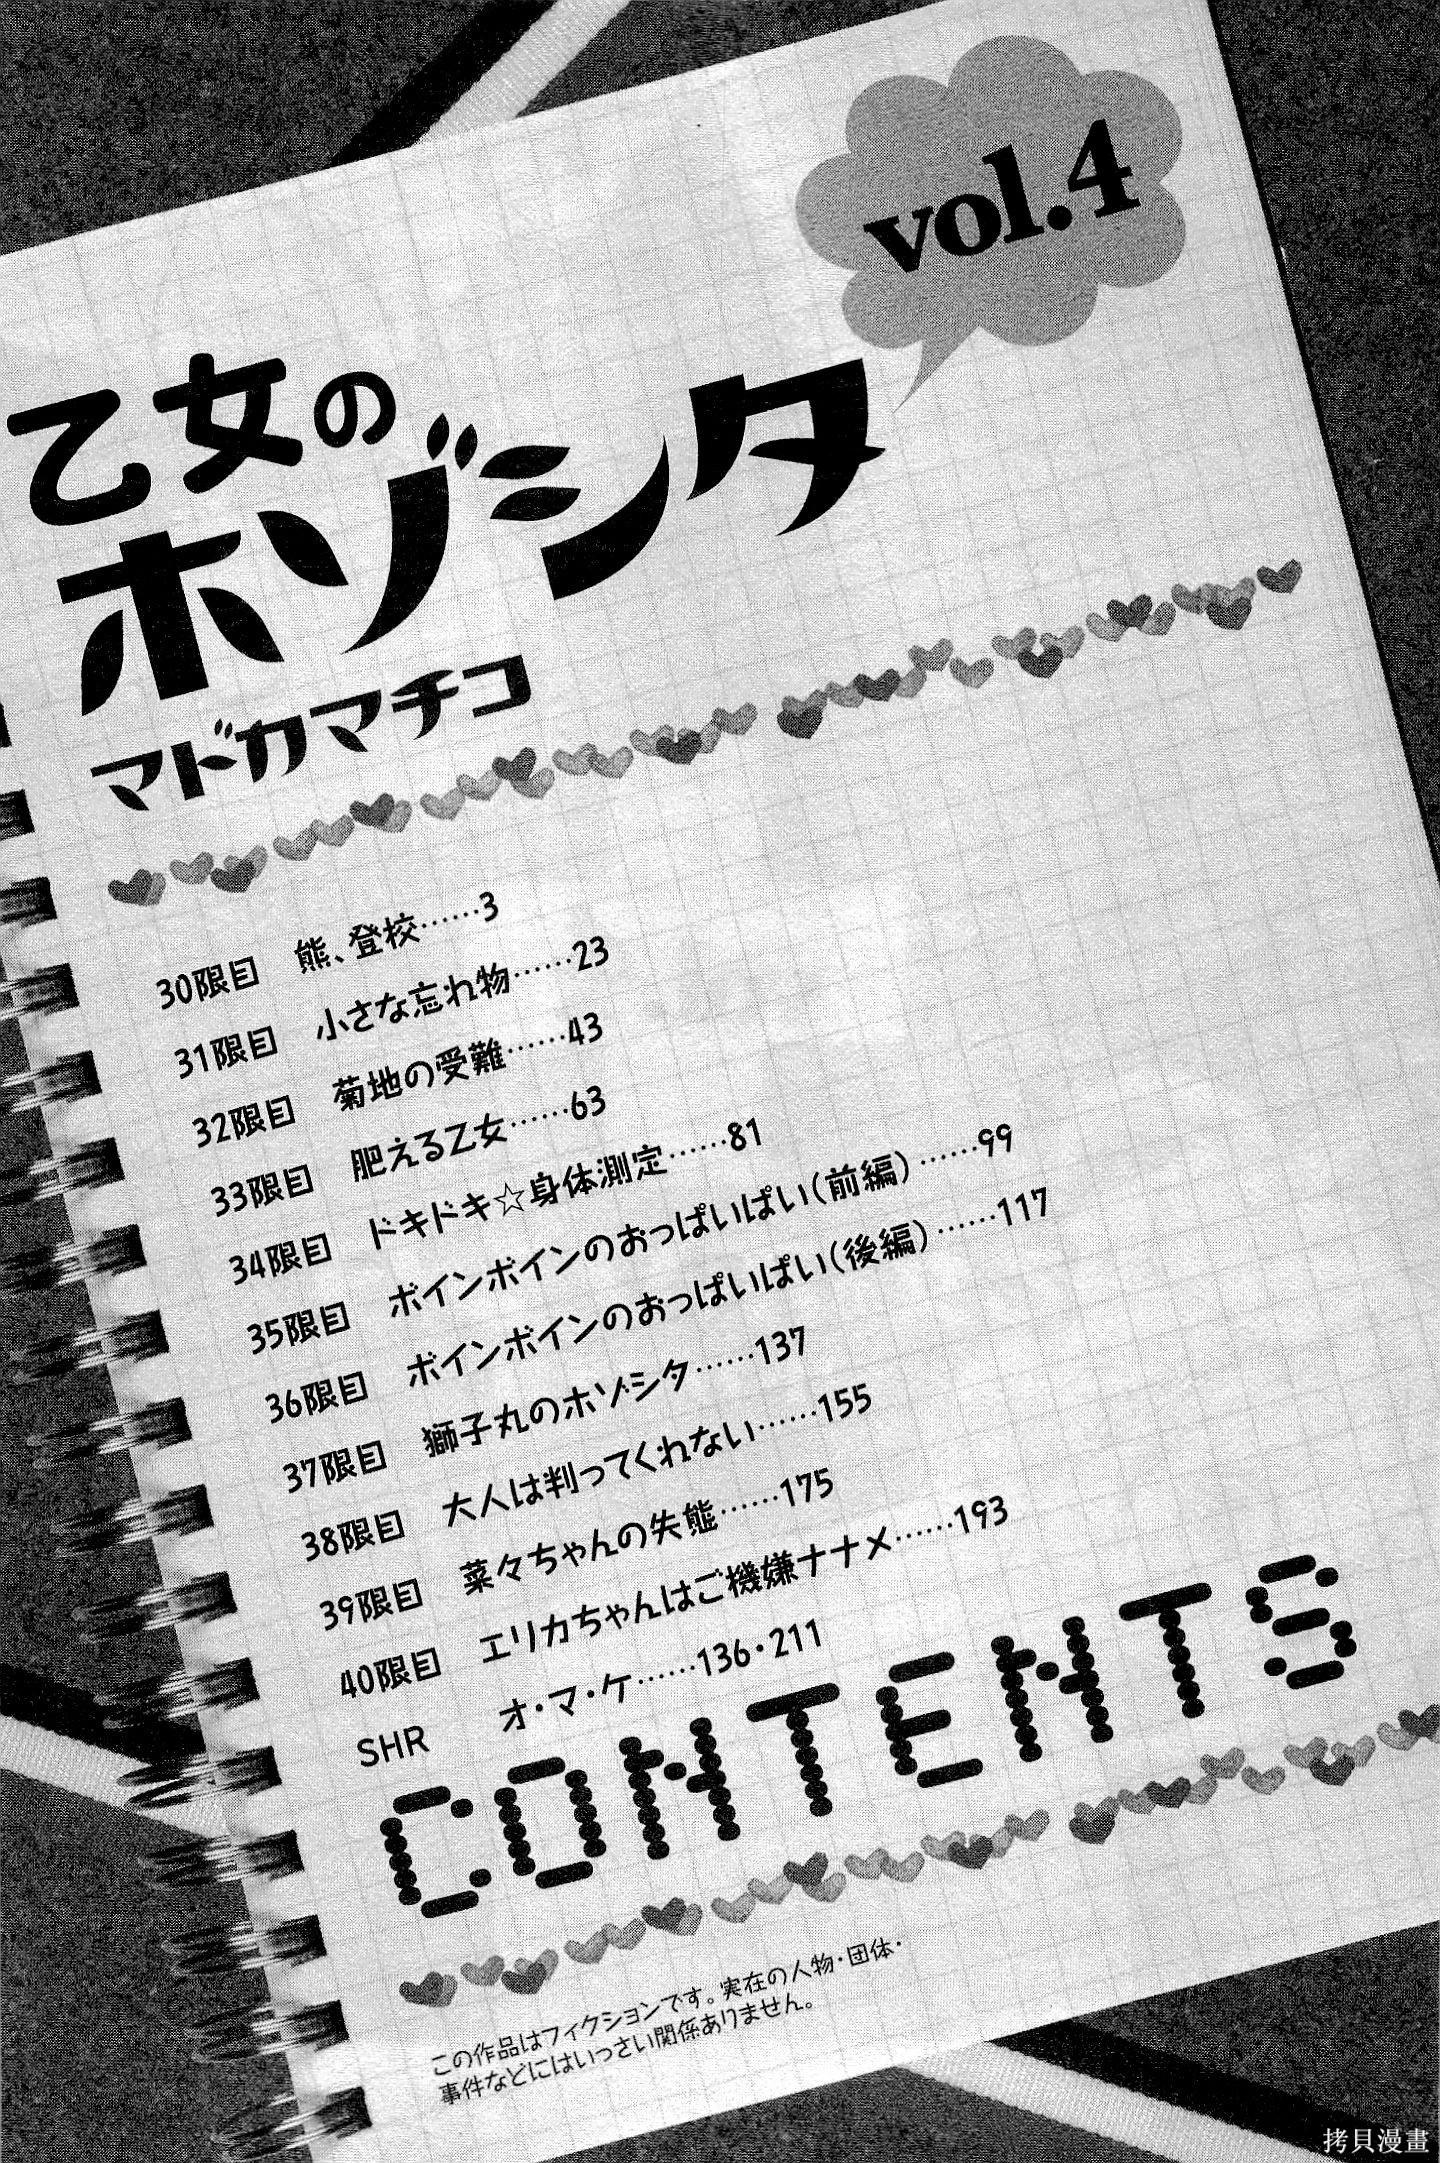 vol.4
乙女の
ホゾシタ
マドカマチコ
30限目 熊、登校……3
31限目 小さな忘れ物……23
32限目 菊地の受難……43
33限目 肥える乙女……63
34限目 ドキドキ☆身体測定……81
35限目 ボインボインのおっぱいぱい(前編)……99
36限目 ボインボインのおっぱいぱい(後編)……117
37限目 獅子丸のホゾシタ……137
38限目 大人は判ってくれない……155
39限目 菜々ちゃんの失態……175
40限目 エリカちゃんはご機嫌ナナメ……193
SHR オ・マ・ケ……136・211
CONTENTS
この作品はフィクションです。実在の人物・団体・
事件などにはいっさい関係ありません。
拷貝漫畫